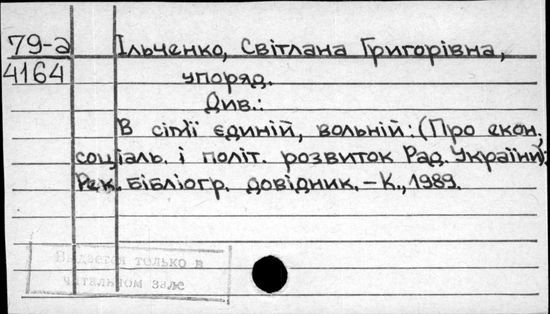 79-а Ільченко, Світлана Григорівна,
4164 упоряд.
Див.:
В сім'ї єдиній, вольній: (Про екон.,
соціаль. і політ. розвиток Рад. України):
Рек. бібліогр. довідник. – К., 1989.
Выдается только в
читальном зале